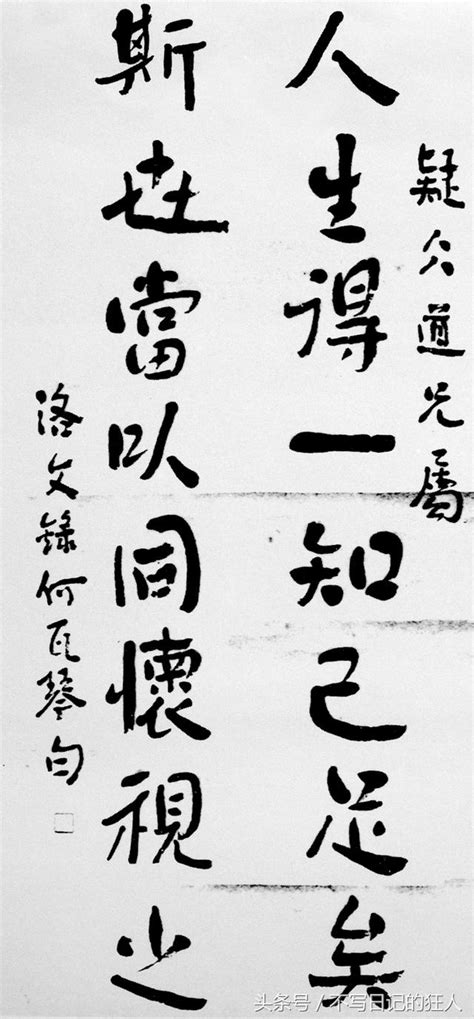 疑仌道兄屬
人生得一知己足矣
斯世當以同懷視之
洛文錄何瓦琴句
头条号 / 不写日记的狂人